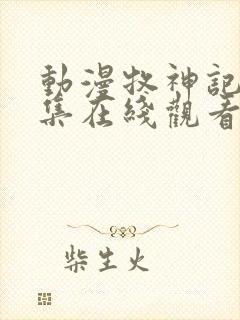 動漫牧神記
集在綫觀看
柴生火